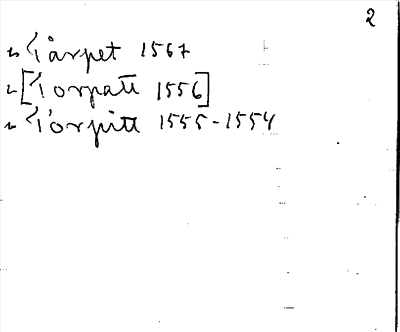 2
" Tårpet 1567
" [Torpatt 1556]
" Torpitt 1555-1554